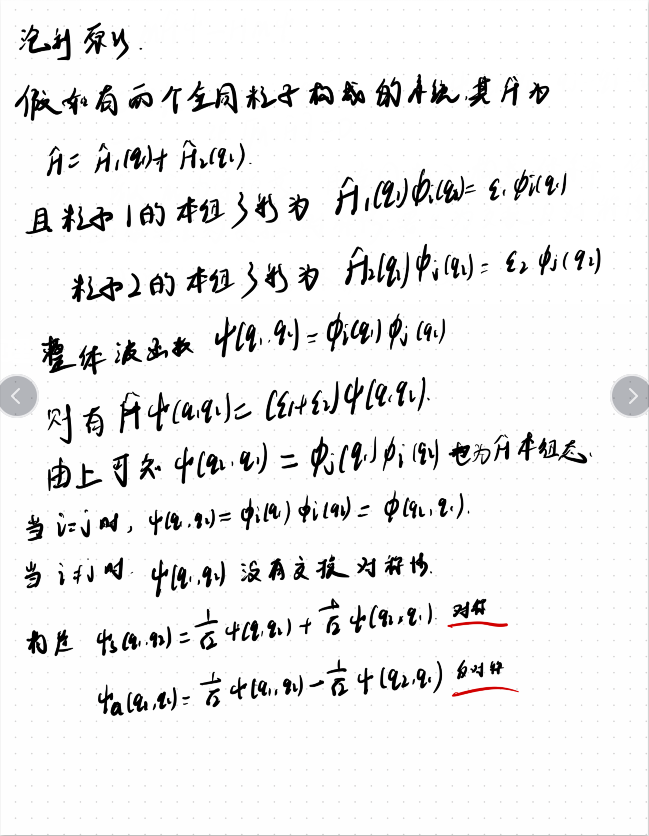 泡利原理.
假如有两个全同粒子构成的系统,其Ĥ为
Ĥ = Ĥ₁(q₁) + Ĥ₂(q₂).
且粒子1的本征方程为 Ĥ₁(q₁)ϕᵢ(q₁) = ε₁ ϕᵢ(q₁)
粒子2的本征方程为 Ĥ₂(q₂)ϕⱼ(q₂) = ε₂ ϕⱼ(q₂)
整体波函数 ψ(q₁,q₂) = ϕᵢ(q₁)ϕⱼ(q₂)
则有 Ĥψ(q₁,q₂) = (ε₁+ε₂)ψ(q₁,q₂).
由上可知 ψ(q₂,q₁) = ϕⱼ(q₁)ϕᵢ(q₂) 也为Ĥ本征态.
当 i=j 时, ψ(q₁,q₂) = ϕᵢ(q₁)ϕᵢ(q₂) = ϕ(q₂,q₁).
当 i≠j 时. ψ(q₁,q₂) 没有交换对称性.
构造 ψs(q₁,q₂) = 1/√2 ψ(q₁,q₂) + 1/√2 ψ(q₂,q₁) 对称
ψa(q₁,q₂) = 1/√2 ψ(q₁,q₂) − 1/√2 ψ(q₂,q₁) 反对称